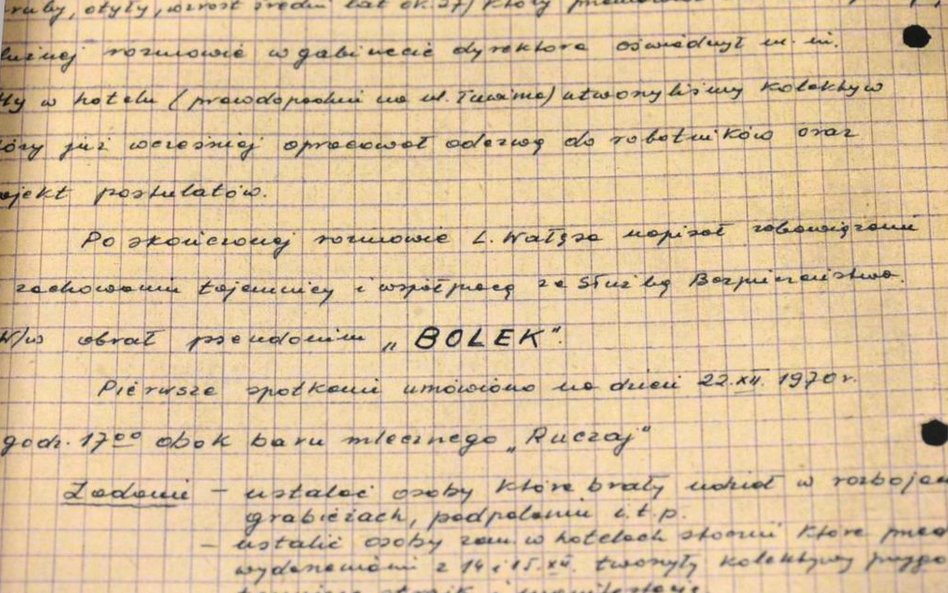 gruby, otyły, wzrost średni lat ok. 27) który
luźnej rozmowie w gabinecie dyrektora oświadczył m. in.
my w hotelu (prawdopodobnie na ul. Tuwima) utworzyliśmy kolektyw
tóry już wcześniej opracował odezwę do robotników oraz
ojekt postulatów.
Po skończonej rozmowie L. Wałęsa napisał zobowiązanie
zachowania tajemnicy i współpracy ze Służbą Bezpieczeństwa.
W/w obrał pseudonim „BOLEK".
Pierwsze spotkanie umówiono na dzień 22.XII. 1970 r.
godz. 17⁰⁰ obok baru mlecznego „Ruczaj"
Zadanie – ustalać osoby które brały udział w rozboja
grabieżach, podpaleniu i.t.p.
– ustalić osoby zam. w hotelach stoczni które
wydarzeniami z 14 i 15.XII. tworzyły kolektywy
strajk i manifestację.